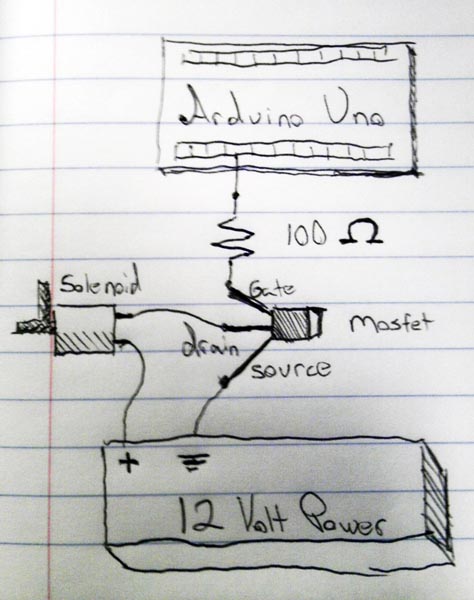 Arduino Uno
100 Ω
Gate
Solenoid
Mosfet
drain
source
+
12 Volt Power